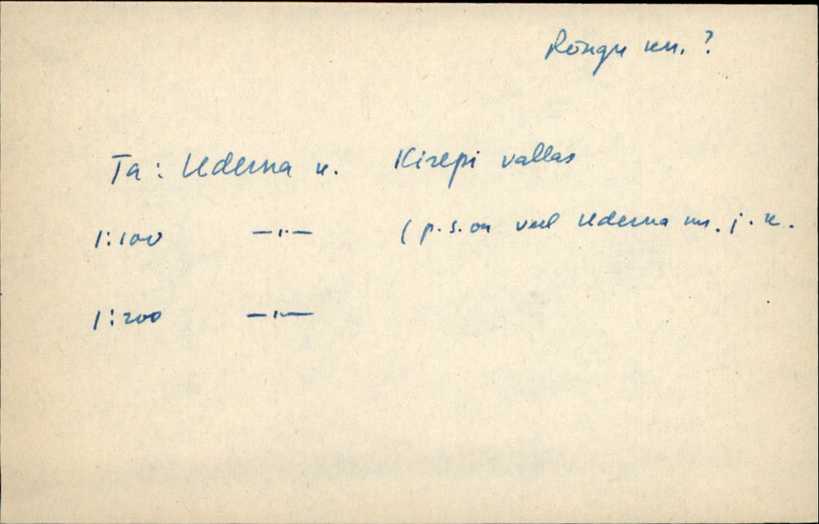 Rõngu khk. ?
Ta: Uderna k. Kirepi vallas
1:100 —"— (p.s. on veel Uderna mr. j. k.
1:200 —"—